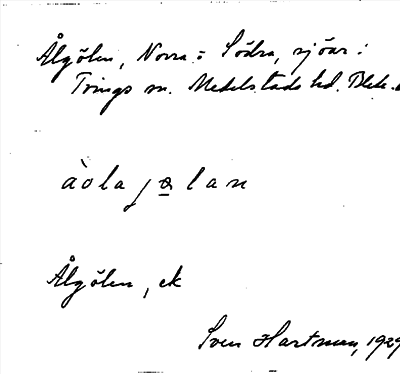 Ålgölen, Norra o Södra, sjöar i
Tvings sn. Medelstads hd. Blek.
àola jø̱lan
Ålgölen, ek
Sven Hartman, 1929